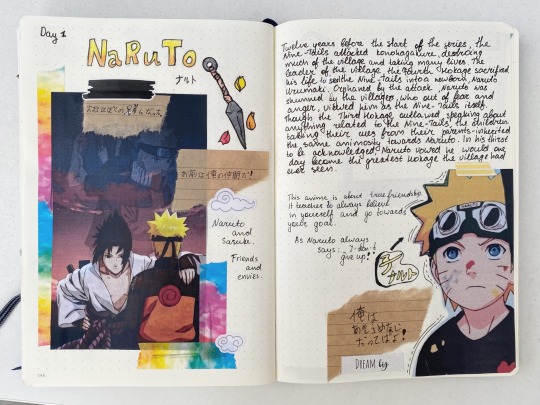 Day 1
NaRuTo
ナルト
お前は俺の仲間だ!
Naruto
and
Sasuke.
Friends
and
envies.
Twelve years before the start of the series, the
Nine-Tails attacked Konohagakure, destroying
much of the village and taking many lives. The
leader of the village, the Fourth Hokage sacrificed
his life to seal the Nine-Tails into a newborn, Naruto
Uzumaki. Orphaned by the attack Naruto was
shunned by the villagers, who out of fear and
anger, viewed him as the Nine-Tails itself.
Though the Third Hokage outlawed speaking about
anything related to the Nine-Tails, the children
taking their cues from their parents-inherited
the same animosity towards Naruto. In his thirst
to be acknowledged, Naruto vowed he would one
day become the greatest Hokage the village had
ever seen.
This anime is about true friendship.
It teaches to always believe
in yourself and go towards
your goal.
As Naruto always
says: „I don't
give up!"
ナルト
俺は
あきらめない
だってばよ!
DREAM big